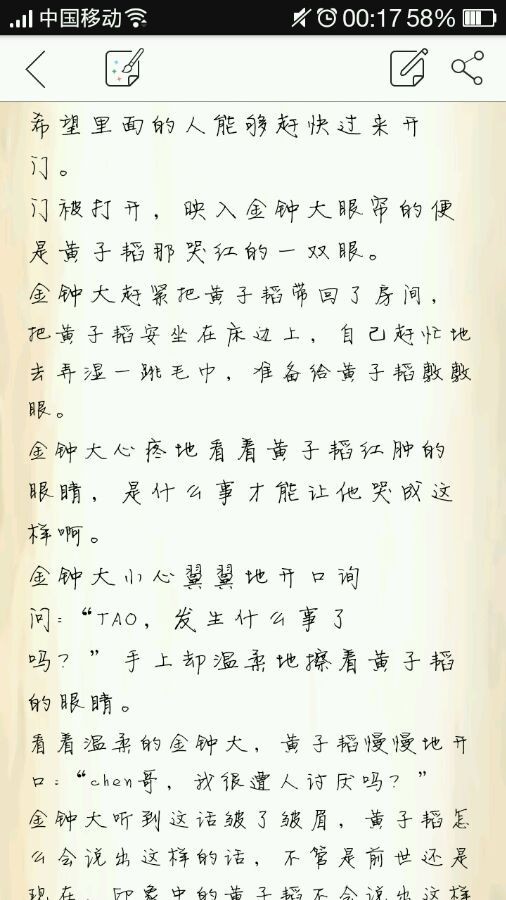 中国移动 00:17 58%
希望里面的人能够赶快过来开
门。
门被打开，映入金钟大眼帘的便
是黄子韬那哭红的一双眼。
金钟大赶紧把黄子韬带回了房间，
把黄子韬安坐在床边上，自己赶忙地
去弄湿一跳毛巾，准备给黄子韬敷敷
眼。
金钟大心疼地看着黄子韬红肿的
眼睛，是什么事才能让他哭成这
样啊。
金钟大小心翼翼地开口询
问：“TAO，发生什么事了
吗？”手上却温柔地擦着黄子韬
的眼睛。
看着温柔的金钟大，黄子韬慢慢地开
口：“chen哥，我很遭人讨厌吗？”
金钟大听到这话皱了皱眉，黄子韬怎
么会说出这样的话，不管是前世还是
现在，印象中的黄子韬不会说出这样